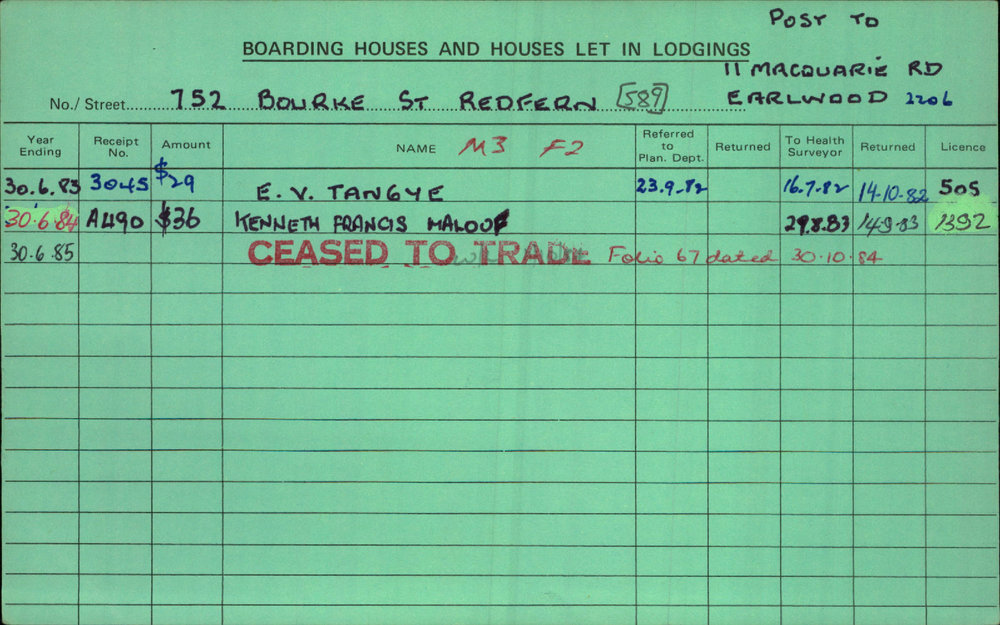 POST TO
BOARDING HOUSES AND HOUSES LET IN LODGINGS
11 MACQUARIE RD
No./Street 752 BOURKE ST REDFERN [589] EARLWOOD 2206
Year Ending Receipt No. Amount NAME M3 F2 Referred to Plan. Dept. Returned To Health Surveyor Returned Licence
30.6.83 3045 $29 E. V. TANGYE 23.9.82 16.7.82 14.10.82 505
30.6.84 A490 $36 KENNETH FRANCIS MALOOF 29.8.83 14.9.83 1392
30.6.85 CEASED TO TRADE Folio 67 dated 30.10.84